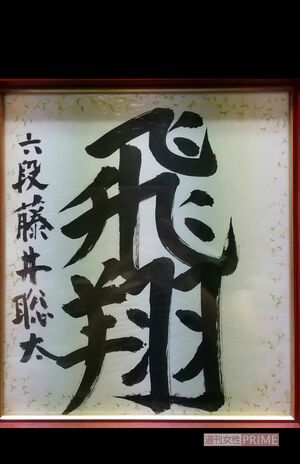 飛翔
六段 藤井聡太
週刊女性PRIME